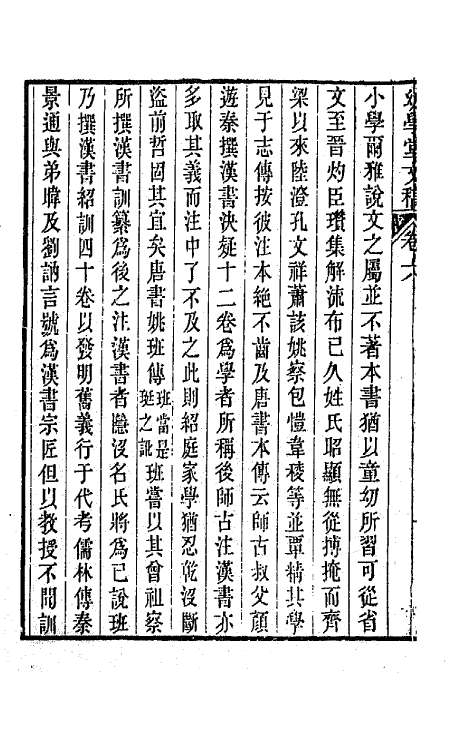 幼學堂文稿 卷六
小學爾雅說文之屬並不著本書猶以童幼所習可從省
文至晉灼臣瓚集解流布已久姓氏昭顯無從摶掩而齊
梁以來陸澄孔文祥蕭該姚察包愷韋稜等並覃精其學
見于志傳按彼注本絶不齒及唐書本傳云師古叔父顏
遊秦撰漢書決疑十二卷爲學者所稱後師古注漢書亦
多取其義而注中了不及之此則紹庭家學猶忍乾沒斷
盜前哲固其宜矣唐書姚班傳班當是珽之訛班嘗以其曾祖察
所撰漢書訓纂爲後之注漢書者隱沒名氏將爲已說班
乃撰漢書紹訓四十卷以發明舊義行于代考儒林傳秦
景通與弟暐及劉訥言號爲漢書宗匠但以教授不聞訓